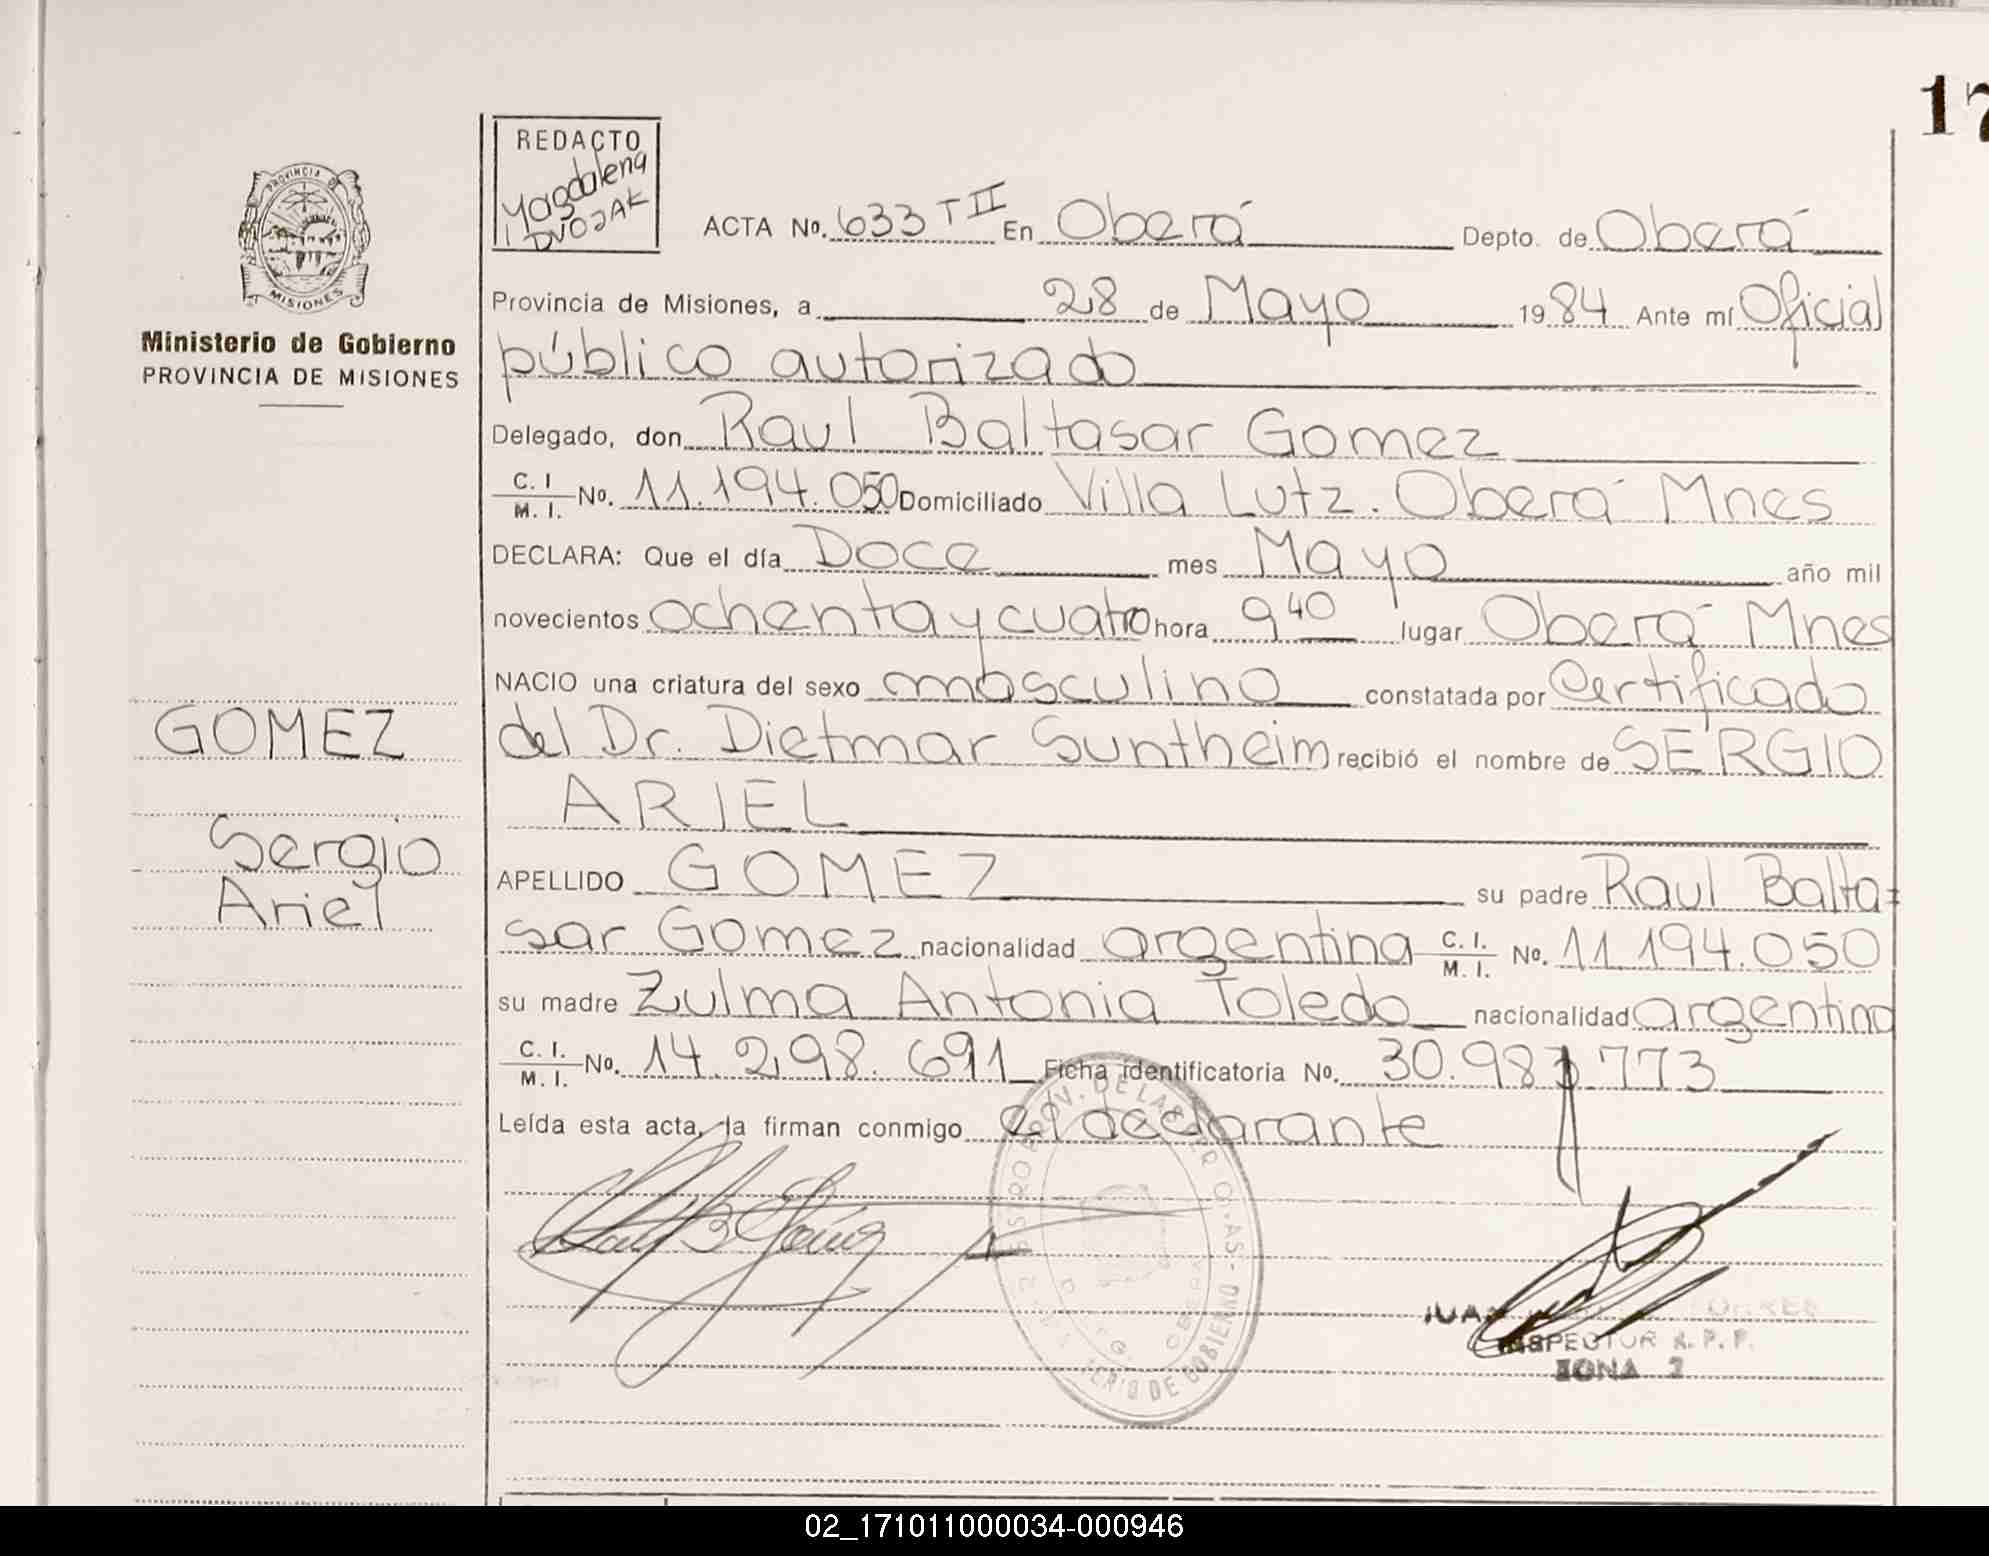 17
REDACTO
Magdalena
DVOJAK
PROVINCIA DE
MISIONES
Ministerio de Gobierno
PROVINCIA DE MISIONES
ACTA No. 633 T II En Oberá Depto. de Oberá
Provincia de Misiones, a 28 de Mayo 1984 Ante mí Oficial
público autorizado
Delegado, don Raul Baltasar Gomez
C. I / M. I. No. 11.194.050 Domiciliado Villa Lutz. Oberá Mnes
DECLARA: Que el día Doce mes Mayo año mil
novecientos ochenta y cuatro hora 9 40 lugar Oberá Mnes
NACIO una criatura del sexo masculino constatada por Certificado
GOMEZ
del Dr. Dietmar Suntheim recibió el nombre de SERGIO
ARIEL
Sergio
Ariel
APELLIDO GOMEZ su padre Raul Balta=
sar Gomez nacionalidad argentina C. I. / M. I. No. 11.194.050
su madre Zulma Antonia Toledo nacionalidad argentina
C. I. / M. I. No. 14.298.691 Ficha identificatoria No. 30.983.773
Leída esta acta, la firman conmigo el declarante
DE GOBIERNO
INSPECTOR R. P. P.
ZONA 2
02_171011000034-000946